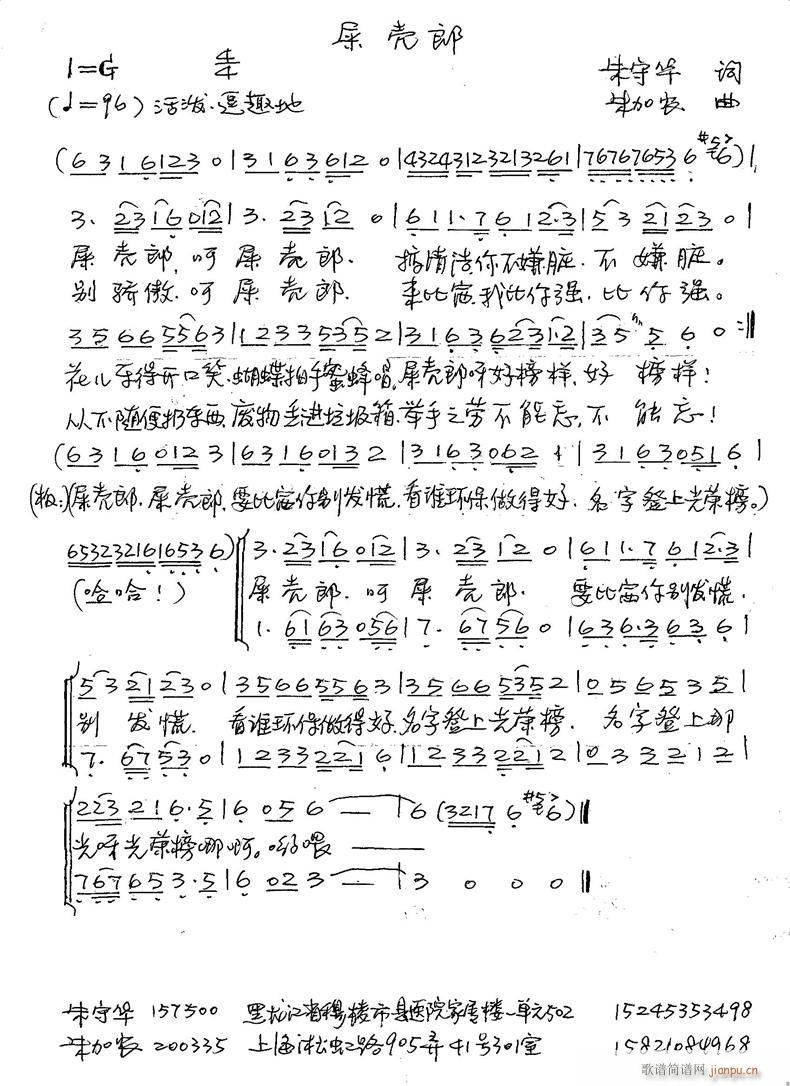 屎壳郎
1=G 4/4 朱守华 词
(♩=96) 活泼、逗趣地 朱加农 曲
(6 3 1 6 1 2 3 0 | 3 1 6 3 6 1 2 0 | 4324 3123 3213 261 | 7676 7653 6 #56) |
3. 23 16 012 | 3. 23 12 0 | 6 1 1. 7 6 1 2. 3 | 5 3 21 23 0 |
屎壳郎,呵屎壳郎. 掂清洁你不嫌脏.不嫌脏。
别骄傲.呵屎壳郎. 来比宽.我比你强.比你强。
3 5 6 6 55 6 3 | 1 2 3 3 53 5 2 | 3 1 6 3 6 23 1. 2 | 3 5 5 6 0 :||
花儿乐得开口笑.蝴蝶拍手蜜蜂唱.屎壳郎呀好榜样.好榜样!
从不随便扔东西.废物丢进垃圾箱.举手之劳不能忘.不能忘!
(6 3 1 6 0 1 2 3 | 6 3 1 6 0 1 3 2 | 3 1 6 3 0 6 2 1 | 3 1 6 3 0 5 1 6 |
(板:)(屎壳郎.屎壳郎.要比宽你别发慌.看谁环保做得好.名字登上光荣榜。)
6532 3216 1653 6) 3. 23 16 012 | 3. 23 12 0 | 6 1 1. 7 6 1 2. 3 |
(哈哈!) 屎壳郎.呵屎壳郎. 要比宽你别发慌.
1. 61 63 056 | 7. 67 56 0 | 6 3 6. 3 6 3 6 |
5 3 21 23 0 | 3 5 6 6 55 6 3 | 3 5 6 6 53 5 2 | 0 5 6 5 3 5 |
别发慌. 看谁环保做得好.名字登上光荣榜. 名字登上那
7. 67 53 0 | 1 2 3 3 22 1 6 | 1 2 3 3 22 1 2 | 0 3 3 2 1 2 |
2 23 2 1 6. 5 | 6 0 5 6 — | 6 (3217 6 #56) ||
光呀光荣榜哪啊。哟喂 ——
7 67 6 5 3. 5 | 6 0 2 3 — | 3 0 0 0 ||
朱守华 157500 黑龙江省穆棱市县医院家属楼一单元502 15245353498
朱加农 200335 上海淞虹路905弄41号301室 15821084968
歌谱简谱网 jianpu.cn